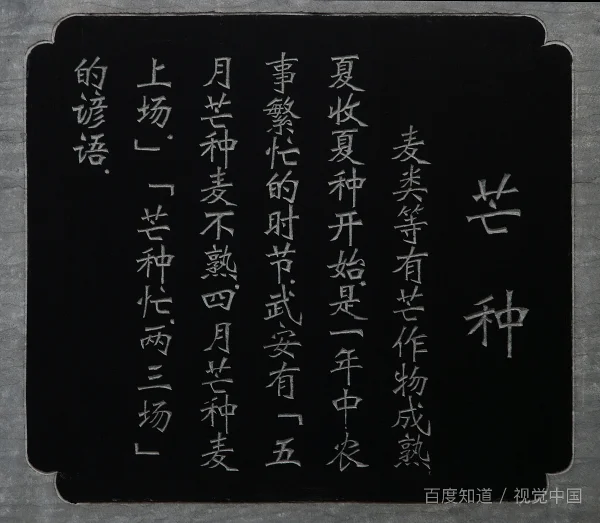 芒种
麦类等有芒作物成熟.
夏收夏种开始.是一年中农
事繁忙的时节.武安有「五
月芒种麦不熟.四月芒种麦
上场.」「芒种忙.两三场」
的谚语.
百度知道 / 视觉中国